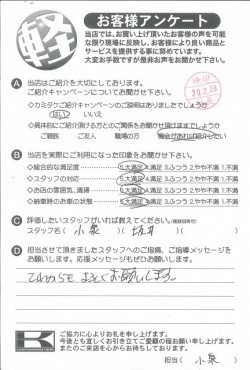 軽
お客様アンケート
当店では、お買い上げ頂いたお客様の声を可能
な限り現場に反映し、お客様により良い商品と
サービスを提供する事に努めています。
大変お手数ですが是非お声をお聞かせ下さい。
A 当店はご紹介を大切にしております。
ご紹介キャンペーンについてお聞かせ下さい。
◇カミタケご紹介キャンペーンのご説明はありましたでしょうか
はい いいえ
◇具体的にご紹介頂ける方とのご関係をお聞かせ頂けますでしょうか
ご親民 ご友人 職場の方 機会があれば紹介したい
B 当店を実際にご利用になった印象をお聞かせ下さい。
◇総合的な満足度 5.大満足 4.満足 3.ふつう 2.やや不満 1.不満
◇スタッフの対応 5.大満足 4.満足 3.ふつう 2.やや不満 1.不満
◇お店の雰囲気、清掃 5.大満足 4.満足 3.ふつう 2.やや不満 1.不満
◇納車時のお車の状態 5.大満足 4.満足 3.ふつう 2.やや不満 1.不満
C 評価したいスタッフがいれば教えてください。(複数回答可)
スタッフ名( 小泉 )( 坂井 )( )
D 担当させて頂きましたスタッフへのご指摘、ご指導メッセージを
お願いします。応援メッセージもぜひお願いします。
これからも よろしくお願いします
K
ご協力に心よりお礼を申し上げます。
今後とも宜しくお引き立てご愛顧の程お願い申し上げます。
またのご来店を心からお待ちしております。
担当( 小泉 )